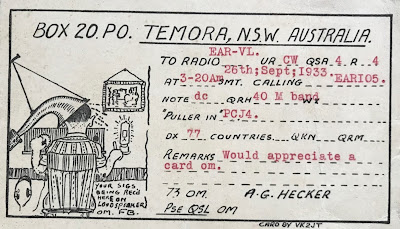 BOX 20. P.O. TEMORA, N.S.W. AUSTRALIA.
EAR-VL.
TO RADIO UR CW QSA 4. R. 4
26th;Sept;1933.
AT 3-20AM GMT. CALLING EAR105.
NOTE dc QRH 40 M band
PULLER IN PCJ4.
DX 77 COUNTRIES. QKN QRM
REMARKS Would appreciate a
card om.
73 OM. A.G. HECKER
PSE QSL OM
YOUR SIGS
BEING REC'D
HERE ON
LOUDSPEAKER
OM. F.B.
CARD BY VK2JT